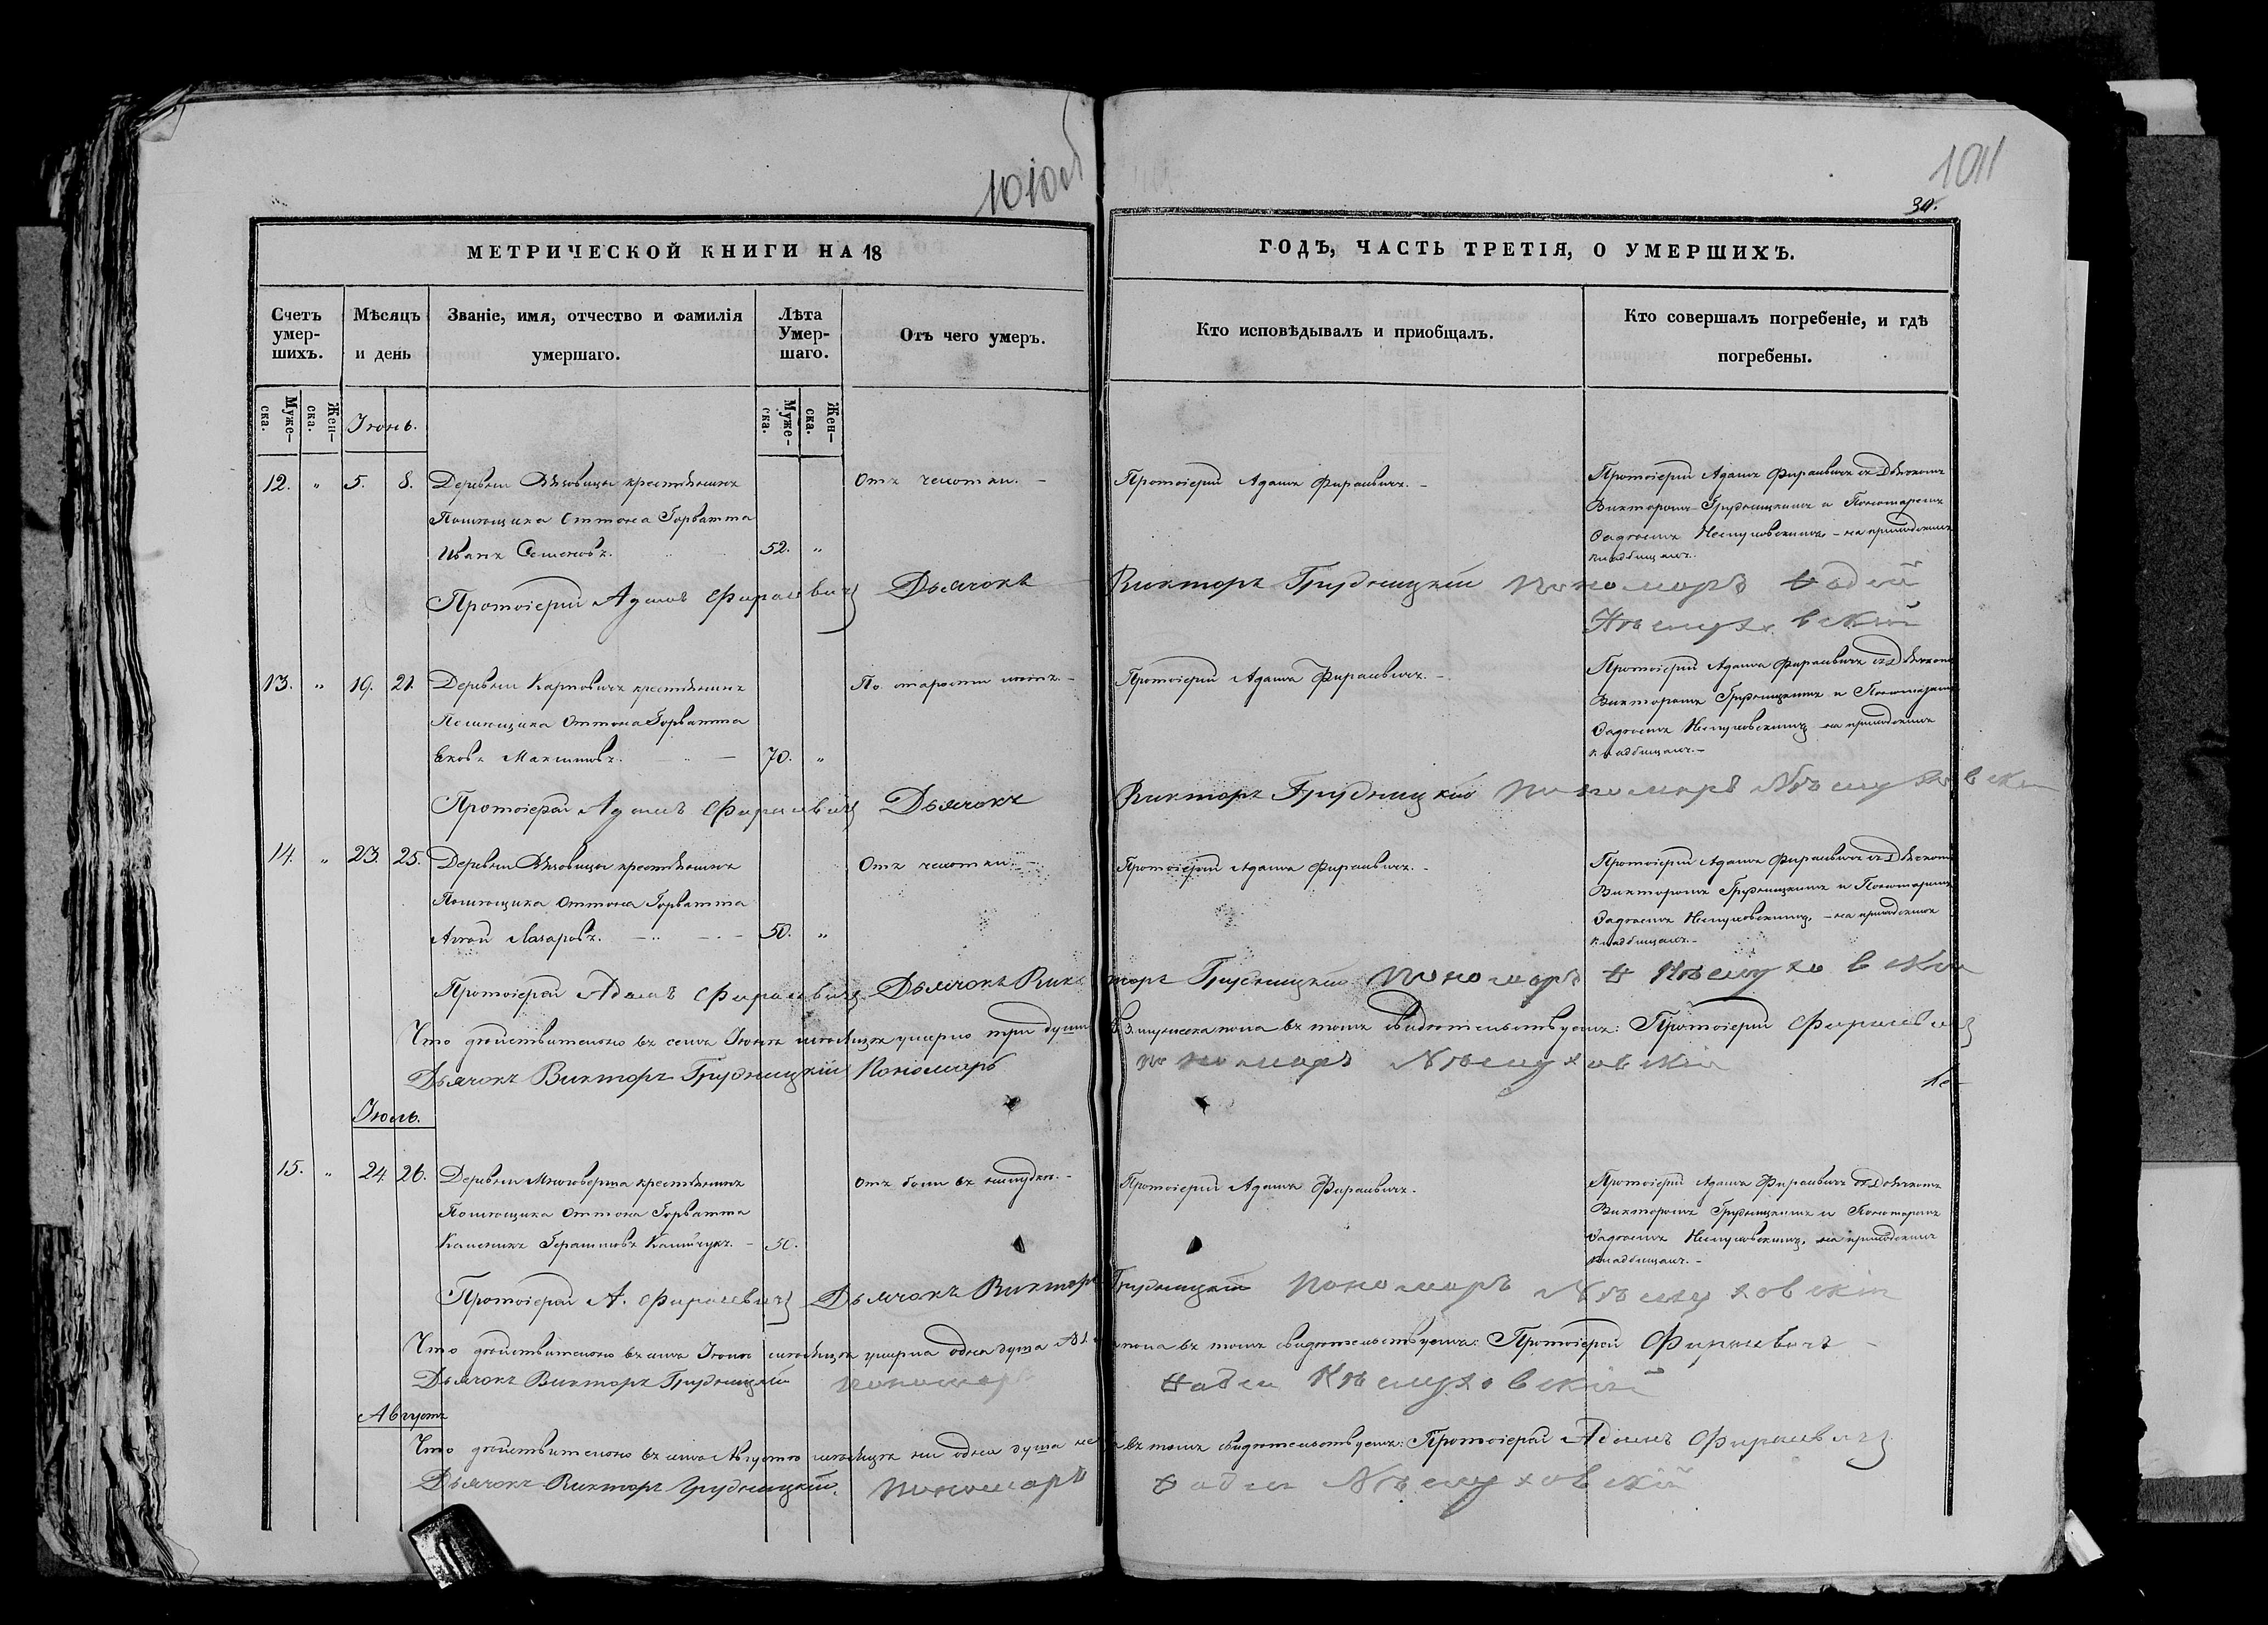 1010об
1011
30.
МЕТРИЧЕСКОЙ КНИГИ НА 18
ГОДЪ, ЧАСТЬ ТРЕТІЯ, О УМЕРШИХЪ.
Счетъ умер-шихъ.
Мѣсяцъ и день
Званіе, имя, отчество и фамилія умершаго.
Лѣта Умер-шаго.
Отъ чего умеръ.
Кто исповѣдывалъ и приобщалъ.
Кто совершалъ погребеніе, и гдѣ погребены.
Муже-ска.
Жен-ска.
Іюнь.
Муже-ска.
Жен-ска.
12. " 5. 8. Деревни крестьянинъ
Помѣщика Оттона Горватта
Иванъ Семеновъ. 52. "
Отъ чехотки. -
Протоіерей Адамъ Фираевичъ. -
Протоіерей Адамъ Фираевичъ съ Дьячкомъ
Викторомъ Грудницкимъ и Пономаремъ
Фадѣемъ - на приходскомъ
кладбищѣ.
Протоіерей Адамъ Фираевичъ Дьячокъ Викторъ Грудницкій пономаръ Фадей
13. " 19. 21. Деревни Карповичъ крестьянинъ
Помѣщика Оттона Горватта
Яковъ Максимовъ. 70. "
По старости лѣтъ. -
Протоіерей Адамъ Фираевичъ. -
Протоіерей Адамъ Фираевичъ съ Дьячкомъ
Викторомъ Грудницкимъ и Пономаремъ
Фадѣемъ на приходскомъ
кладбищѣ. -
Протоіерей Адамъ Фираевичъ Дьячокъ Викторъ Грудницкій пономаръ
14. " 23. 25. Деревни крестьянинъ
Помѣщика Оттона Горватта
Лазаровъ. 50. "
Отъ чехотки. -
Протоіерей Адамъ Фираевичъ. -
Протоіерей Адамъ Фираевичъ съ Дьячкомъ
Викторомъ Грудницкимъ и Пономаремъ
Фадѣемъ - на приходскомъ
кладбищѣ. -
Протоіерей Адамъ Фираевичъ Дьячокъ Викторъ Грудницкій пономаръ Ф
Что дѣйствительно въ семъ Іюнѣ мѣсяцѣ умерло три души 3. мужеска пола въ томъ свидѣтельствуемъ: Протоіерей Фираевичъ
Дьячокъ Викторъ Грудницкій Пономаръ
Іюль.
15. " 24. 26. Деревни крестьянинъ
Помѣщика Оттона Горватта
Герасимовъ 50.
Отъ боли въ желудкѣ. -
Протоіерей Адамъ Фираевичъ.
Протоіерей Адамъ Фираевичъ съ Дьячкомъ
Викторомъ Грудницкимъ и Пономаремъ
Фадѣемъ на приходскомъ
кладбищѣ. -
Протоіерей А. Фираевичъ Дьячокъ Викторъ Грудницкій пономаръ
Что дѣйствительно въ семъ Іюлѣ мѣсяцѣ умерла одна душа пола въ томъ свидѣтельствуемъ: Протоіерей Фираевичъ
Дьячокъ Викторъ Грудницкій пономаръ Фадеи
Августъ
Что дѣйствительно въ семъ Августѣ мѣсяцѣ ни одна душа не въ томъ свидѣтельствуемъ: Протоіерей Адамъ Фираевичъ
Дьячокъ Викторъ Грудницкій. пономаръ Фадеи